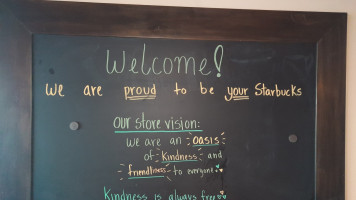 Welcome!
We are proud to be your Starbucks
Our store vision:
We are an oasis
of Kindness and
friendliness to everyone
Kindness is always free